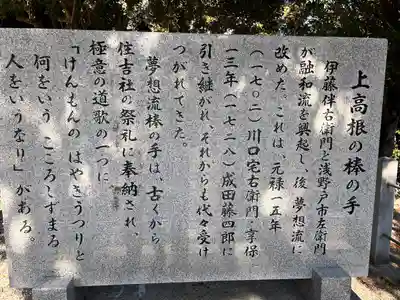 上高根の棒の手
伊藤伴右衛門と浅野戸市左衛門
が融和流を興起し、後夢想流に
改めた。これは、元禄一五年
(一七〇二)川口宅右衛門、享保
一三年(一七二八)成田藤四郎に
引き継がれ、それからも代々受け
つがれてきた。
夢想流棒の手は、古くから
住吉社の祭礼に奉納され、
極意の道歌の一つに
「けんもんのはやきうつりと
何をいう こころしずまる
人をいうなり」がある。